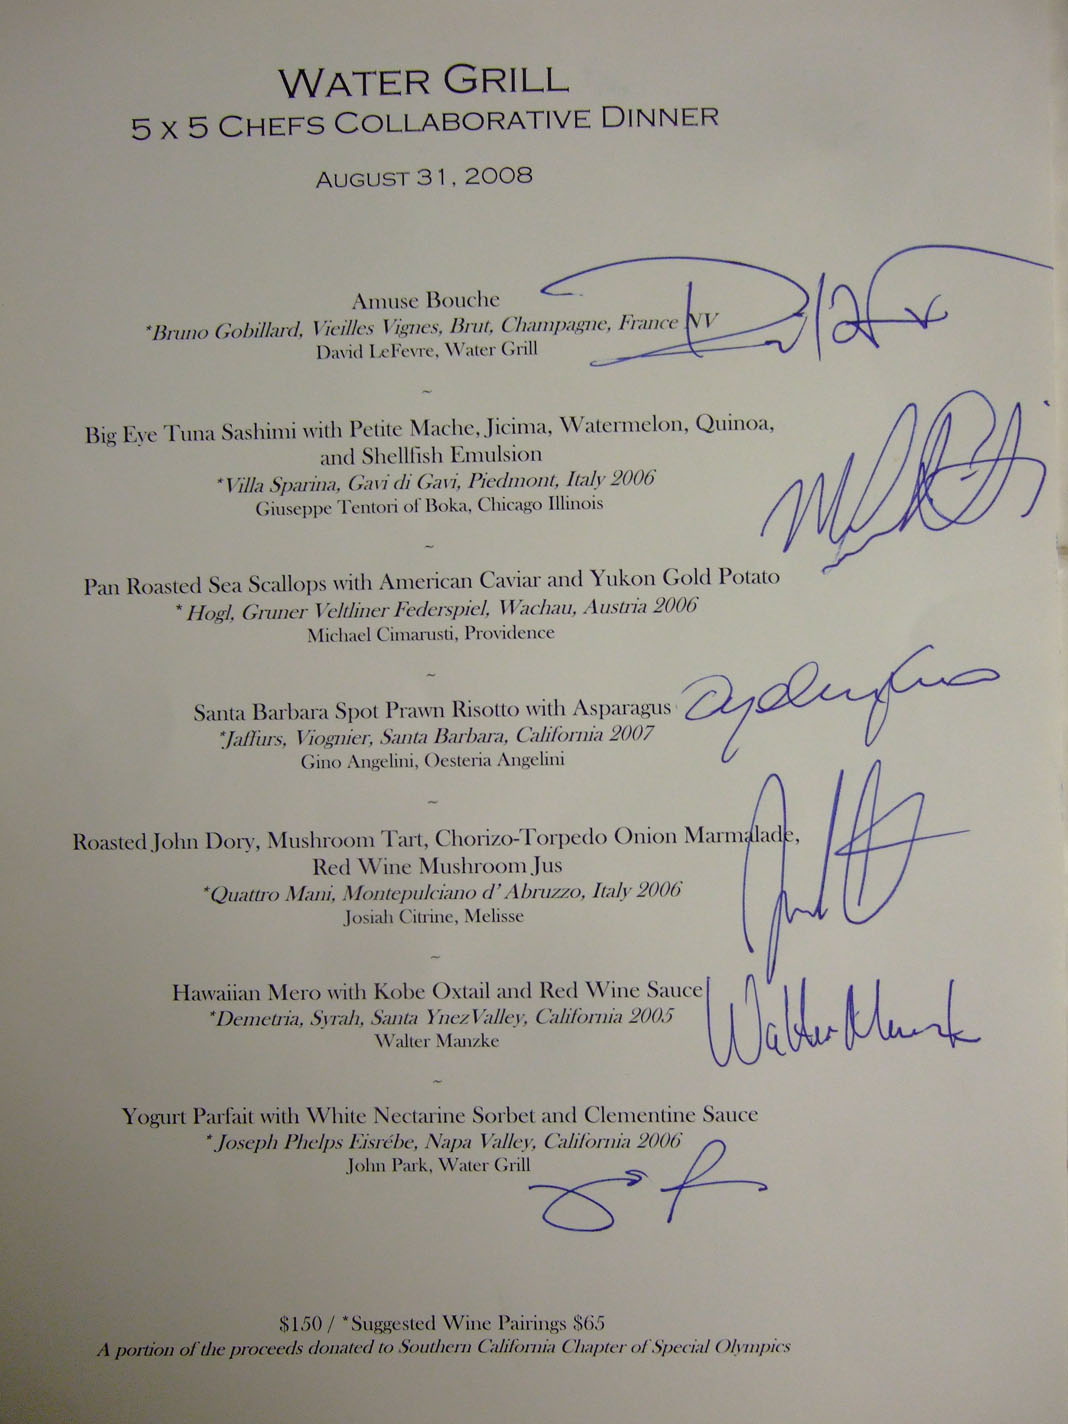 WATER GRILL
5 X 5 CHEFS COLLABORATIVE DINNER
AUGUST 31, 2008
Amuse Bouche
*Bruno Gobillard, Vieilles Vignes, Brut, Champagne, France NV
David LeFevre, Water Grill
~
Big Eye Tuna Sashimi with Petite Mache, Jicima, Watermelon, Quinoa,
and Shellfish Emulsion
*Villa Sparina, Gavi di Gavi, Piedmont, Italy 2006
Giuseppe Tentori of Boka, Chicago Illinois
~
Pan Roasted Sea Scallops with American Caviar and Yukon Gold Potato
* Hogl, Gruner Veltliner Federspiel, Wachau, Austria 2006
Michael Cimarusti, Providence
~
Santa Barbara Spot Prawn Risotto with Asparagus
*Jaffurs, Viognier, Santa Barbara, California 2007
Gino Angelini, Oesteria Angelini
~
Roasted John Dory, Mushroom Tart, Chorizo-Torpedo Onion Marmalade,
Red Wine Mushroom Jus
*Quattro Mani, Montepulciano d' Abruzzo, Italy 2006
Josiah Citrine, Melisse
~
Hawaiian Mero with Kobe Oxtail and Red Wine Sauce
*Demetria, Syrah, Santa Ynez Valley, California 2005
Walter Manzke
Walter Manzke
~
Yogurt Parfait with White Nectarine Sorbet and Clementine Sauce
*Joseph Phelps Eisrébe, Napa Valley, California 2006
John Park, Water Grill
$150 / *Suggested Wine Pairings $65
A portion of the proceeds donated to Southern California Chapter of Special Olympics